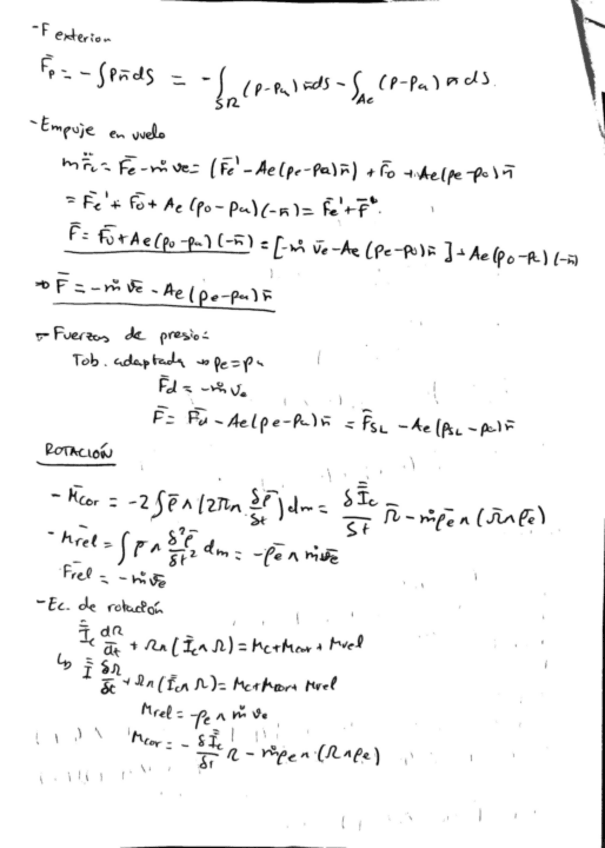 -F exterior
F̄p = -∫Pn̄dS = -∫SΩ (P-Pa) n̄ds - ∫Ae (P-Pa) n̄ ds
-Empuje en vuelo
m r̈c = F̄e - ṁ ve = (F̄e' - Ae(pe-pa)n̄) + F̄o + Ae(pe-po)n̄
= F̄e' + F̄o + Ae (po-pa)(-n̄) = F̄e' + F̄
F̄ = F̄o + Ae(po-pa)(-n̄) = [-ṁ v̄e - Ae (pe-po)n̄] + Ae(po-pa)(-n̄)
⇒ F̄ = -ṁ v̄e - Ae(pe-pa)n̄
- Fuerzas de presio:
Tob. adaptada → pe = pa
F̄d = -ṁ ve
F̄ = F̄d - Ae(pe-pa)n̄ = F̄SL - Ae(pSL-pa)n̄
ROTACIÓN
- M̄cor = -2∫ρ̄ ∧ (2Ω∧ δρ̄/δt) dm = δĪc/δt Ω̄ - ṁρ̄e ∧ (Ω̄∧ρ̄e)
- M̄rel = ∫ρ̄ ∧ δ²ρ̄/δt² dm = -ρ̄e ∧ ṁv̄e
F̄rel = -ṁv̄e
-Ec. de rotación
Īc dΩ/dt + Ω∧(Īc∧Ω) = Mc+Mcor+Mrel
↳ Ī δΩ/δt + Ω∧(Īc∧Ω) = Mc+Mcor+Mrel
Mrel = -ρe ∧ ṁ ve
Mcor = - δĪc/δt Ω - ṁρe ∧ (Ω∧ρe)